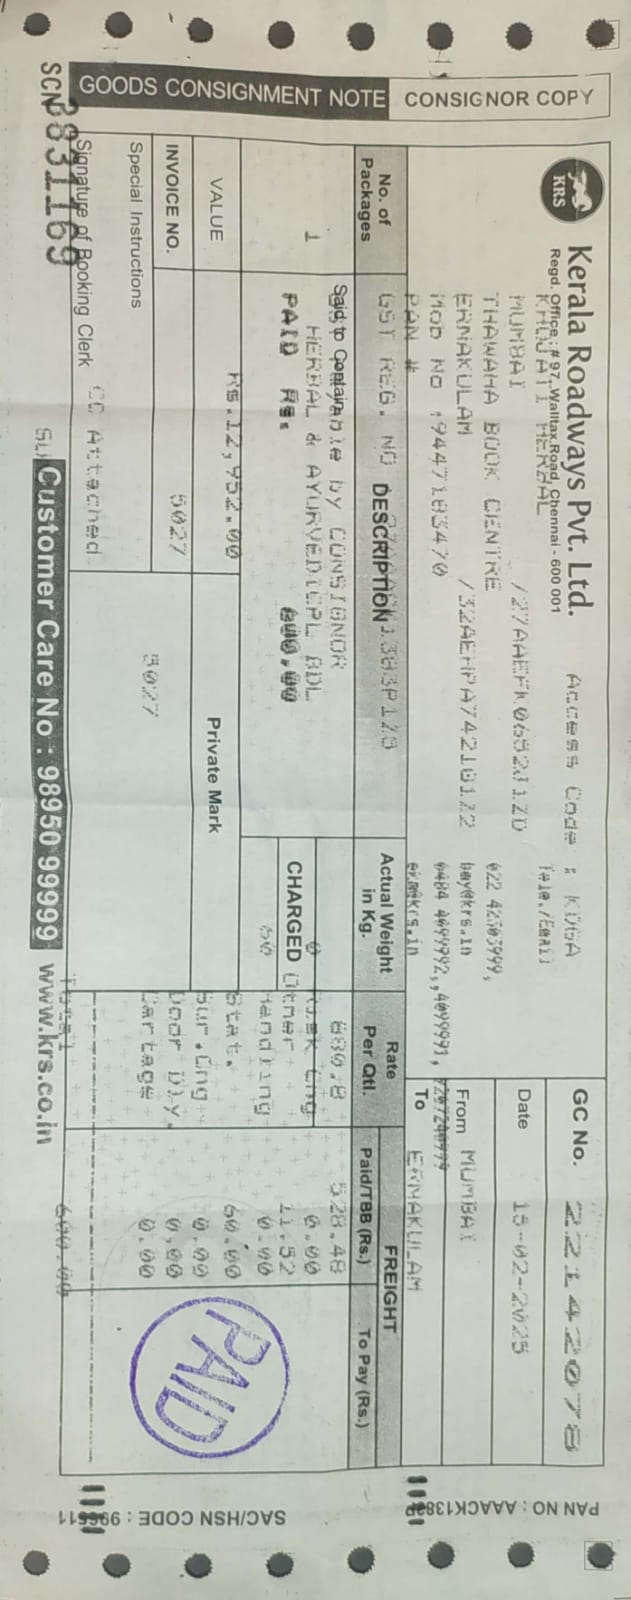 GOODS CONSIGNMENT NOTE CONSIGNOR COPY
SCN 3831169
KRS
Kerala Roadways Pvt. Ltd.
Regd. Office : # 97, Walltax Road, Chennai - 600 001
Access Code : KDGA
KHOJATI HERBAL
Tele./Email
MUMBAI /27AAEFK0652J1ZD
022 42303999,
THAWAHA BOOK CENTRE
bay@krs.in
ERNAKULAM /32AEHPA7421B1Z2
0484 4099992,,4099991,
MOB No :9447183470
ekm@krs.in
PAN #
GC No. 22142078
Date 15-02-2025
From MUMBAI
To ERNAKULAM
No. of Packages
GST REG. NO
DESCRIPTION
Actual Weight in Kg.
Rate Per Qtl.
FREIGHT
Paid/TBB (Rs.)
To Pay (Rs.)
Said to Contain
by CONSIGNOR
880.8 528.48
1 HERBAL & AYURVEDICPL BDL
0 0.00
PAID Rs. 600.00
CHARGED
Other 11.52
60 Handling 0.00
VALUE Rs.12,952.00
Private Mark
Stat. 60.00
Sur.Chg 0.00
INVOICE NO. 5027
Door Dly. 0.00
Special Instructions
5027
Cartage 0.00
PAID
Signature of Booking Clerk
CC Attached
Total 600.00
Customer Care No : 98950 99999 www.krs.co.in
PAN NO : AAACK1383
SAC/HSN CODE : 996511